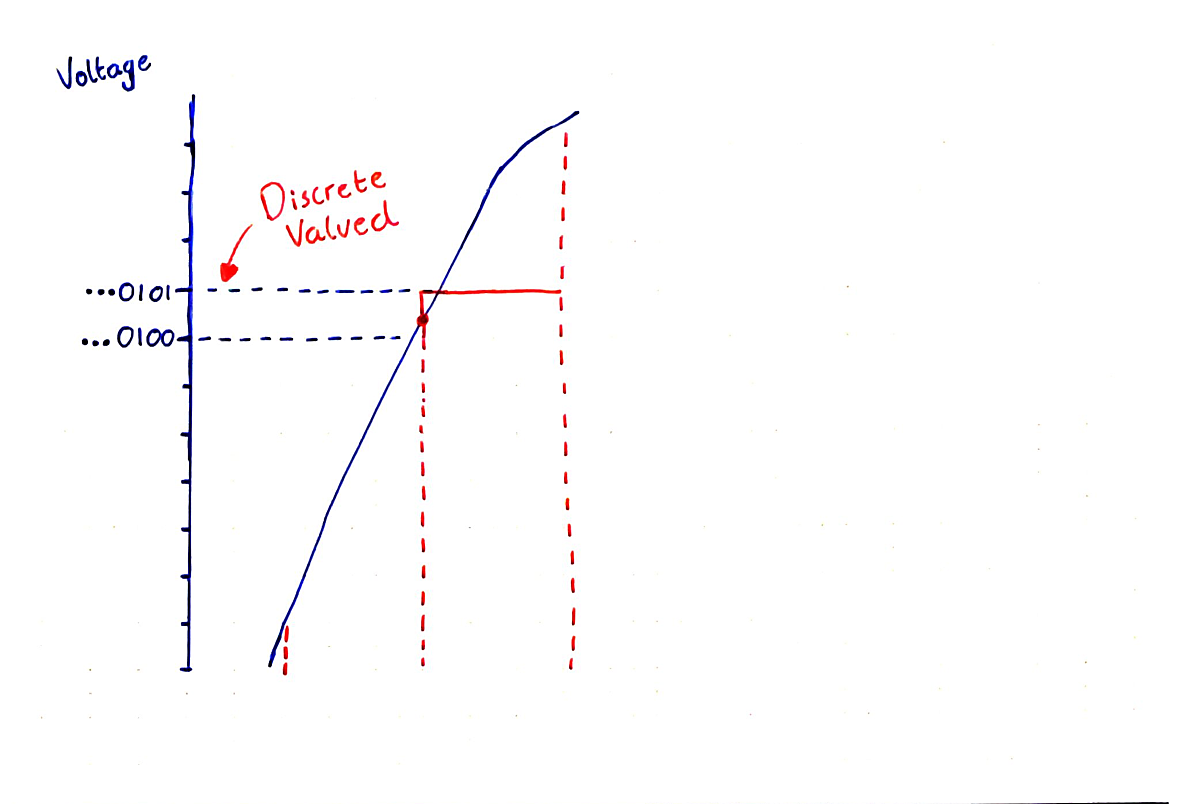 Voltage
Discrete
Valved
...0101
...0100